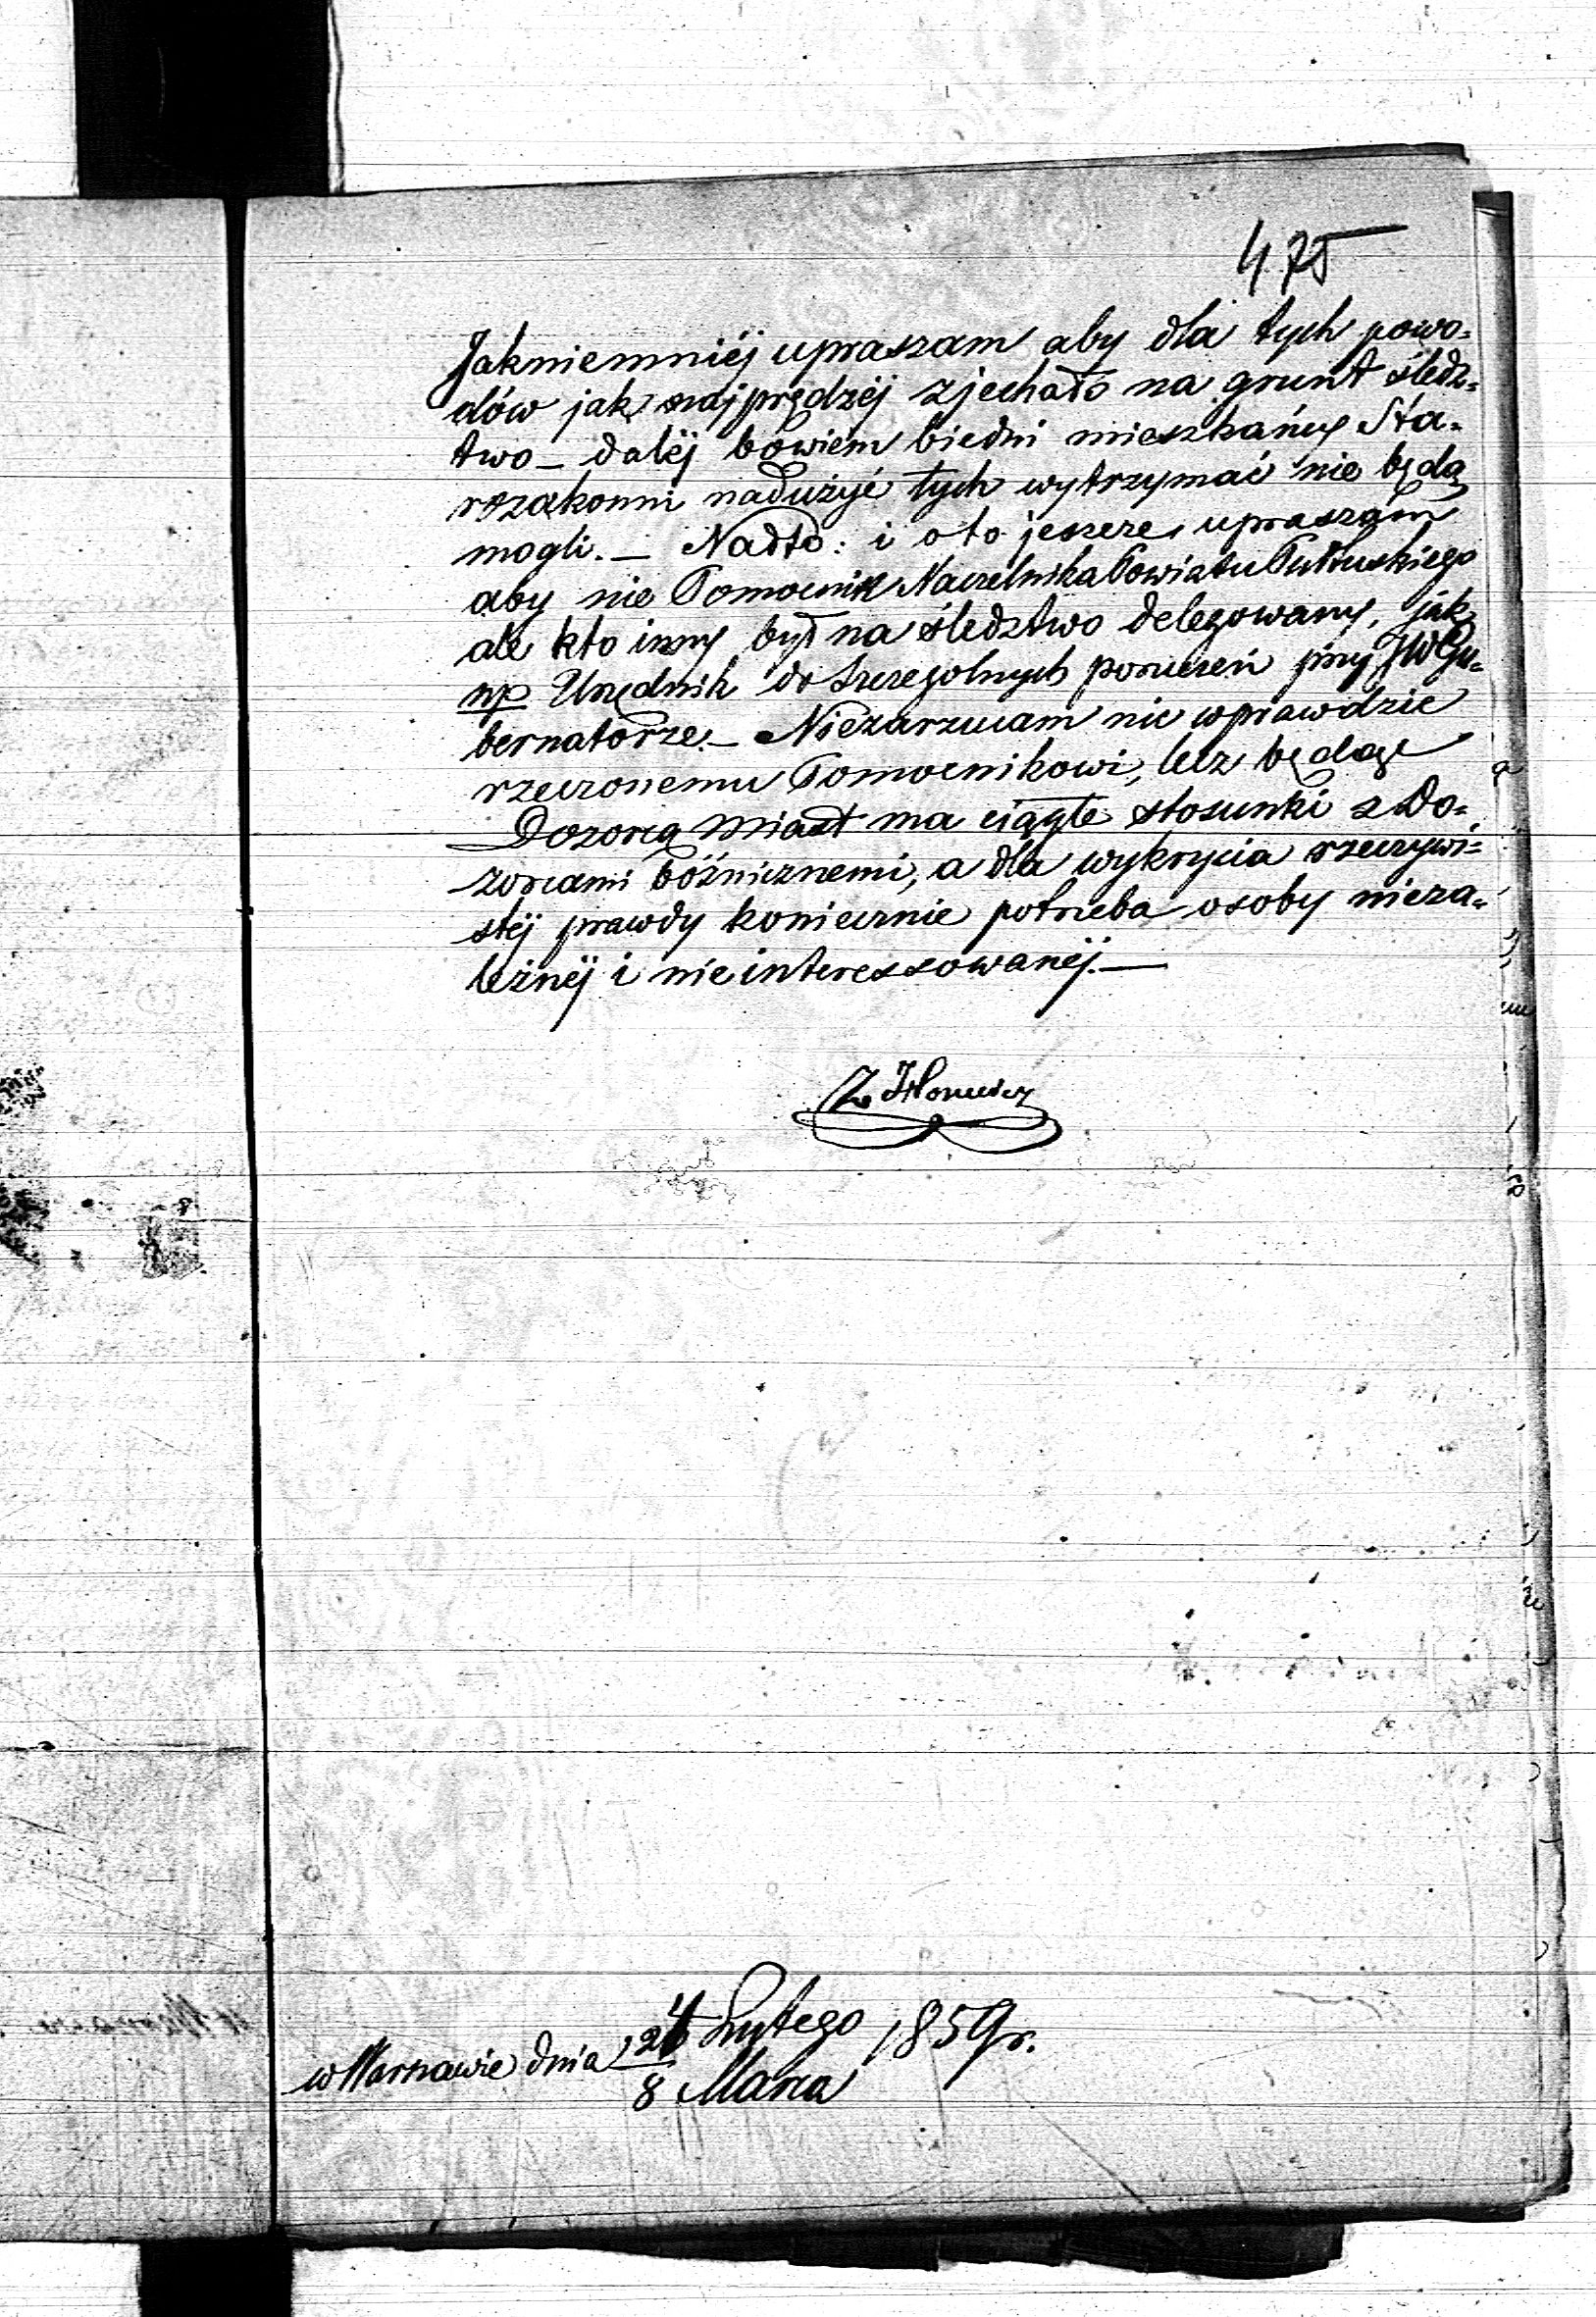 475
Jakniemniéj upraszam aby dla tych powo=
dów jak najprędzéj zjechało na grunt śledz=
two – daléj bowiem biedni mieszkańcy Sta=
rozakonni nadużyć tych wytrzymać nie będą
mogli. – Nadto: i o to jeszcze upraszam
aby nie Pomocnik Naczelnika Powiatu Pułtuskiego
ale kto inny był na śledztwo delegowany, jak
np Urzędnik do szczególnych poruczeń przy JW Gu=
bernatorze. – Niezarzucam nic wprawdzie
rzeczonemu Pomocnikowi, lecz będąc
Dozorcą Miast ma ciągłe stosunki z Do=
zorcami bóżnicznemi, a dla wykrycia rzeczywi=
stéj prawdy koniecznie potrzeba osoby nieza=
leżnéj i nieinteressowanéj. –
Z
w Warszawie dnia Lutego 1859 r.
8 Marca